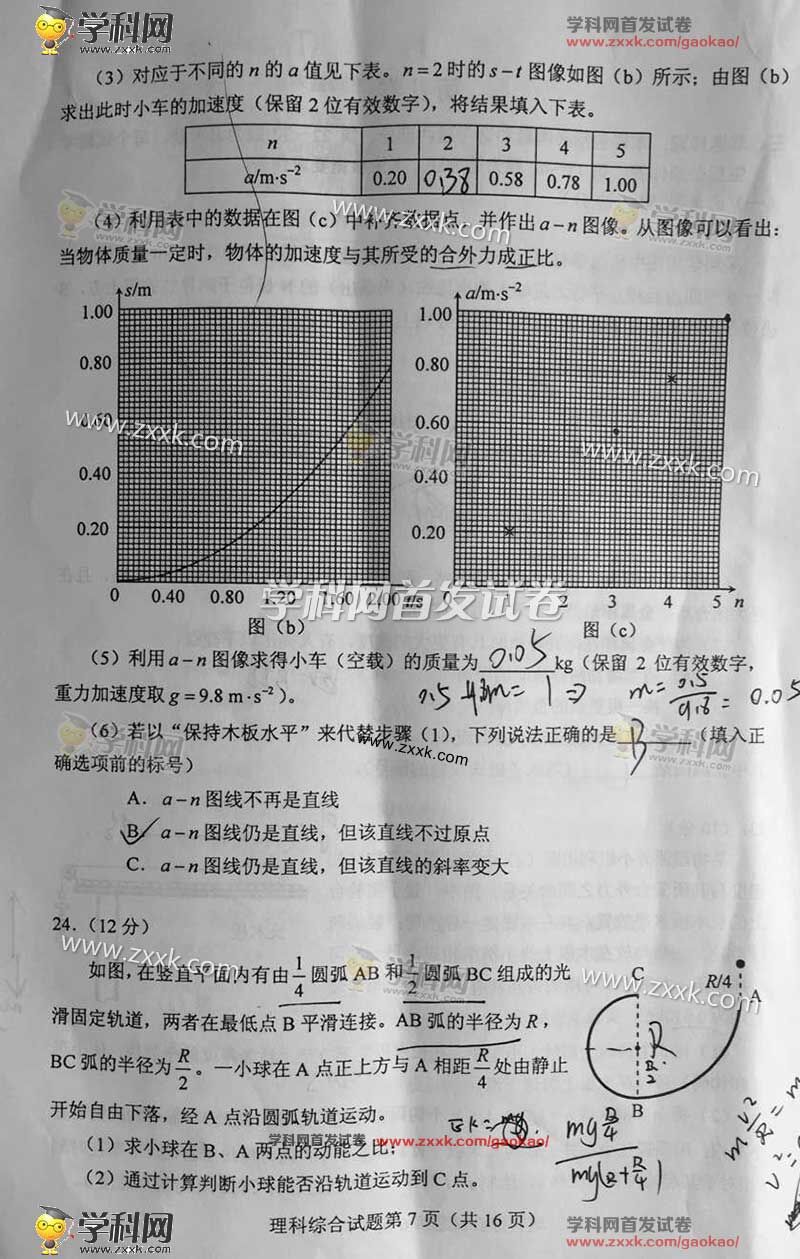 学科网 www.zxxk.com
学科网首发试卷
http://www.zxxk.com/gaokao/
(3)对应于不同的 n 的 a 值见下表。n=2 时的 s-t 图像如图(b)所示;由图(b)
求出此时小车的加速度(保留 2 位有效数字),将结果填入下表。
n 1 2 3 4 5
a/m·s⁻² 0.20 0.38 0.58 0.78 1.00
(4)利用表中的数据在图(c)中补齐数据点,并作出 a-n 图像。从图像可以看出:
当物体质量一定时,物体的加速度与其所受的合外力成正比。
s/m
1.00
0.80
0.60
0.40
0.20
0 0.40 0.80 1.20 1.60 2.00 t/s
图(b)
a/m·s⁻²
1.00
0.80
0.60
0.40
0.20
0 2 3 4 5 n
图(c)
www.zxxk.com
学科网
www.zxxk.com
学科网首发试卷
(5)利用 a-n 图像求得小车(空载)的质量为 0.05 kg(保留 2 位有效数字,
重力加速度取 g=9.8 m·s⁻²)。
(6)若以“保持木板水平”来代替步骤(1),下列说法正确的是 B (填入正
确选项前的标号)
www.zxxk.com
A. a-n 图线不再是直线
B. a-n 图线仍是直线,但该直线不过原点
C. a-n 图线仍是直线,但该直线的斜率变大
24.(12 分)
如图,在竖直平面内有由 1/4 圆弧 AB 和 1/2 圆弧 BC 组成的光
滑固定轨道,两者在最低点 B 平滑连接。AB 弧的半径为 R,
BC 弧的半径为 R/2。一小球在 A 点正上方与 A 相距 R/4 处由静止
开始自由下落,经 A 点沿圆弧轨道运动。
(1)求小球在 B、A 两点的动能之比;
(2)通过计算判断小球能否沿轨道运动到 C 点。
C
R/4
A
R
R/2
B
学科网首发试卷 www.zxxk.com/gaokao/
理科综合试题第 7 页(共 16 页)
学科网 www.zxxk.com
学科网首发试卷
http://www.zxxk.com/gaokao/